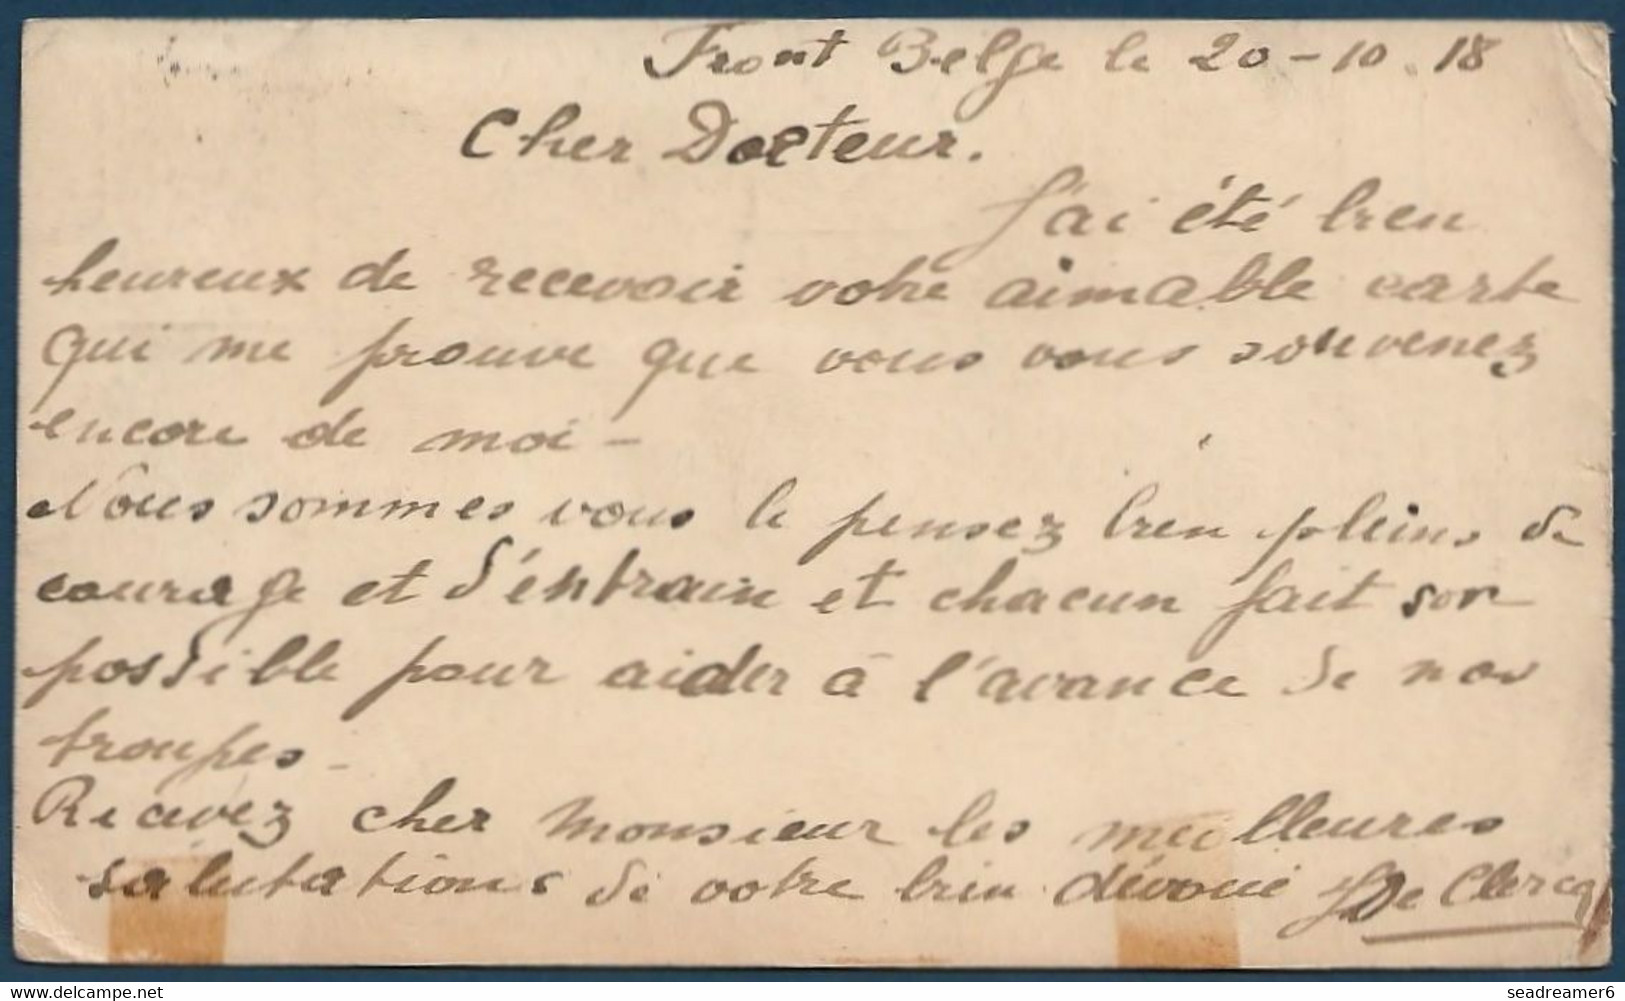 Front Belge le 20-10.18
Cher Docteur.
J'ai été bien
heureux de recevoir votre aimable carte
qui me prouve que vous vous souvenez
encore de moi -
Nous sommes vous le pensez bien pleins de
courage et d'entrain et chacun fait son
possible pour aider à l'avance de nos
troupes -
Recevez cher Monsieur les meilleures
salutations de votre bien dévoué De Clercq
www.delcampe.net
seadreamer6